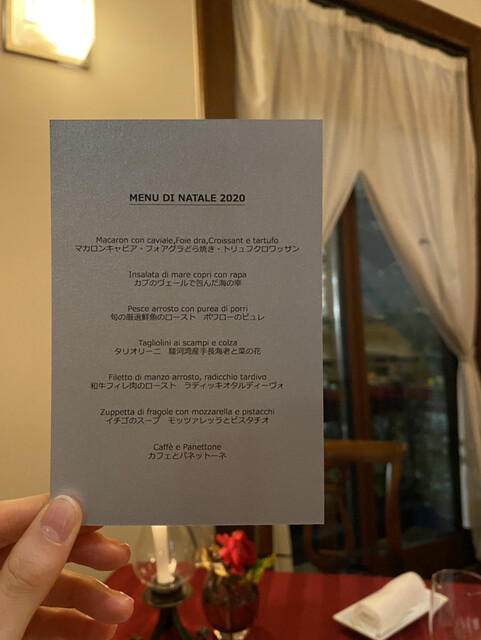 MENU DI NATALE 2020
Macaron con caviale,Foie dra,Croissant e tartufo
マカロンキャビア・フォアグラどら焼き・トリュフクロワッサン
Insalata di mare copri con rapa
カブのヴェールで包んだ海の幸
Pesce arrosto con purea di porri
旬の厳選鮮魚のロースト　ポワローのピュレ
Tagliolini ai scampi e colza
タリオリーニ　駿河湾産手長海老と菜の花
Filetto di manzo arrosto, radicchio tardivo
和牛フィレ肉のロースト　ラディッキオタルディーヴォ
Zuppetta di fragole con mozzarella e pistacchi
イチゴのスープ　モッツァレッラとピスタチオ
Caffè e Panettone
カフェとパネットーネ